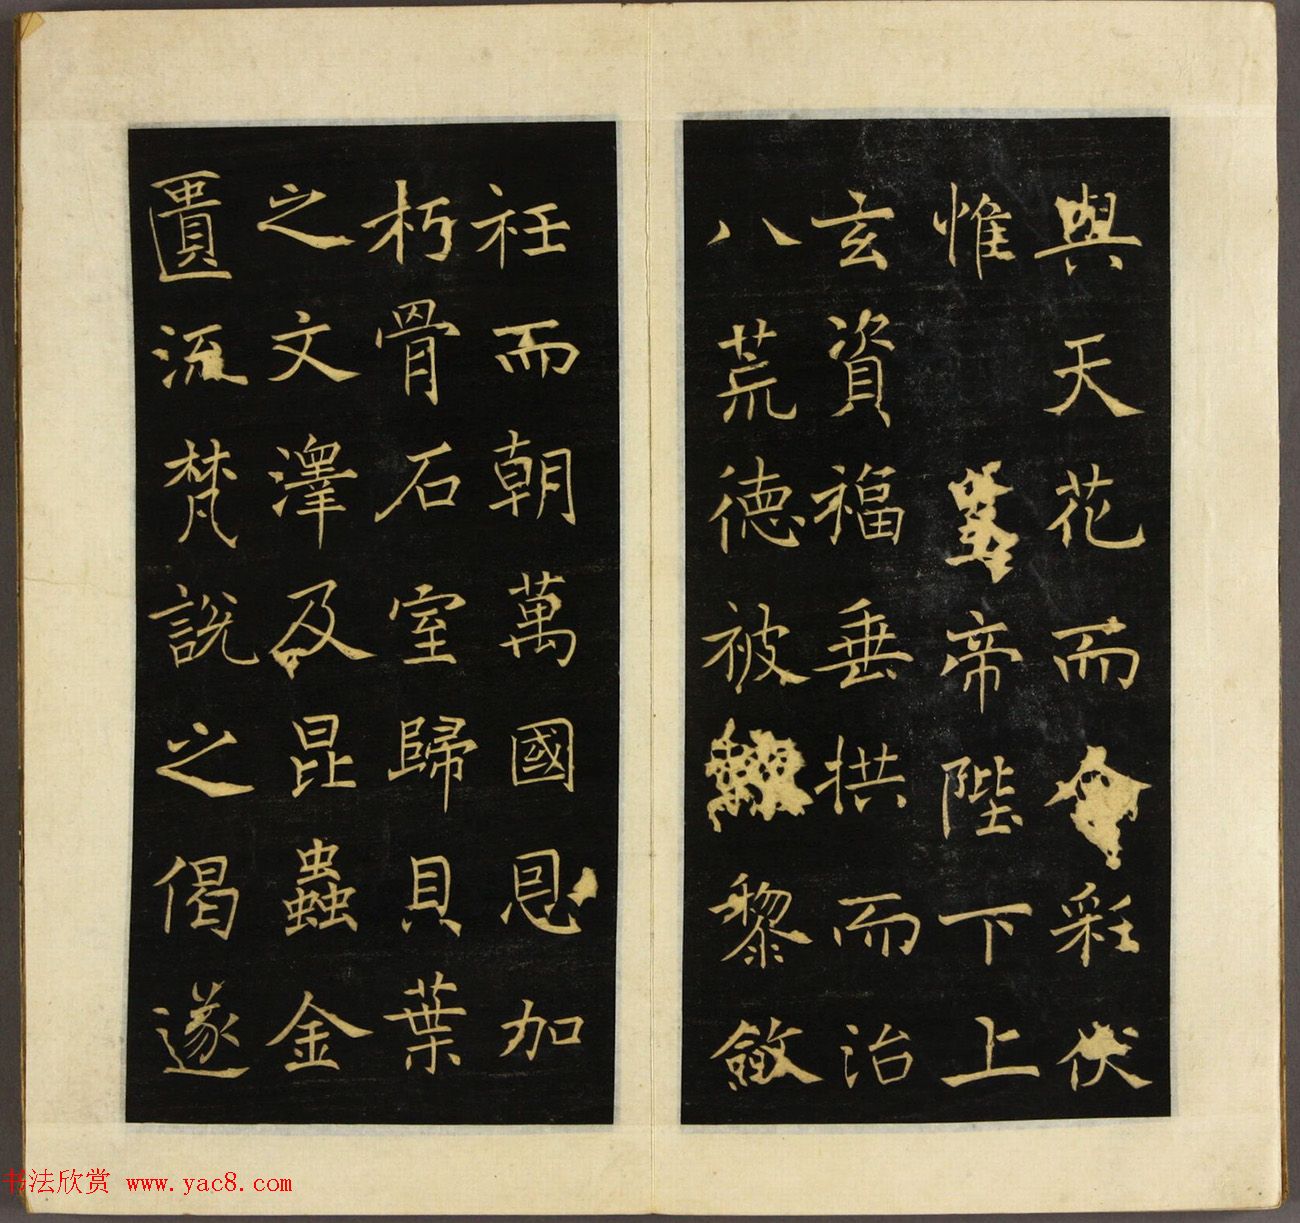 與天花而彩伏
惟帝陛下上
玄資福垂拱而治
八荒德被黎斂
衽而朝萬國恩加
朽骨石室歸貝葉
之文澤及昆蟲金
匱流梵說之偈遂
书法欣赏 www.yac8.com